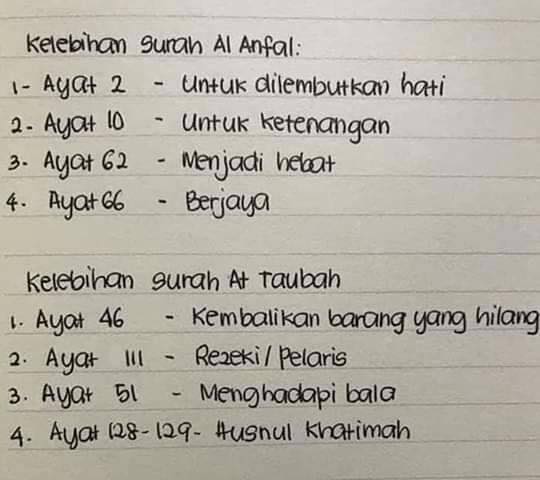 Kelebihan surah Al Anfal:
1- Ayat 2 - Untuk dilembutkan hati
2- Ayat 10 - Untuk ketenangan
3- Ayat 62 - Menjadi hebat
4. Ayat 66 - Berjaya
Kelebihan surah At Taubah
1. Ayat 46 - Kembalikan barang yang hilang
2. Ayat 111 - Rezeki / Pelaris
3. Ayat 51 - Menghadapi bala
4. Ayat 128-129- Husnul Khatimah